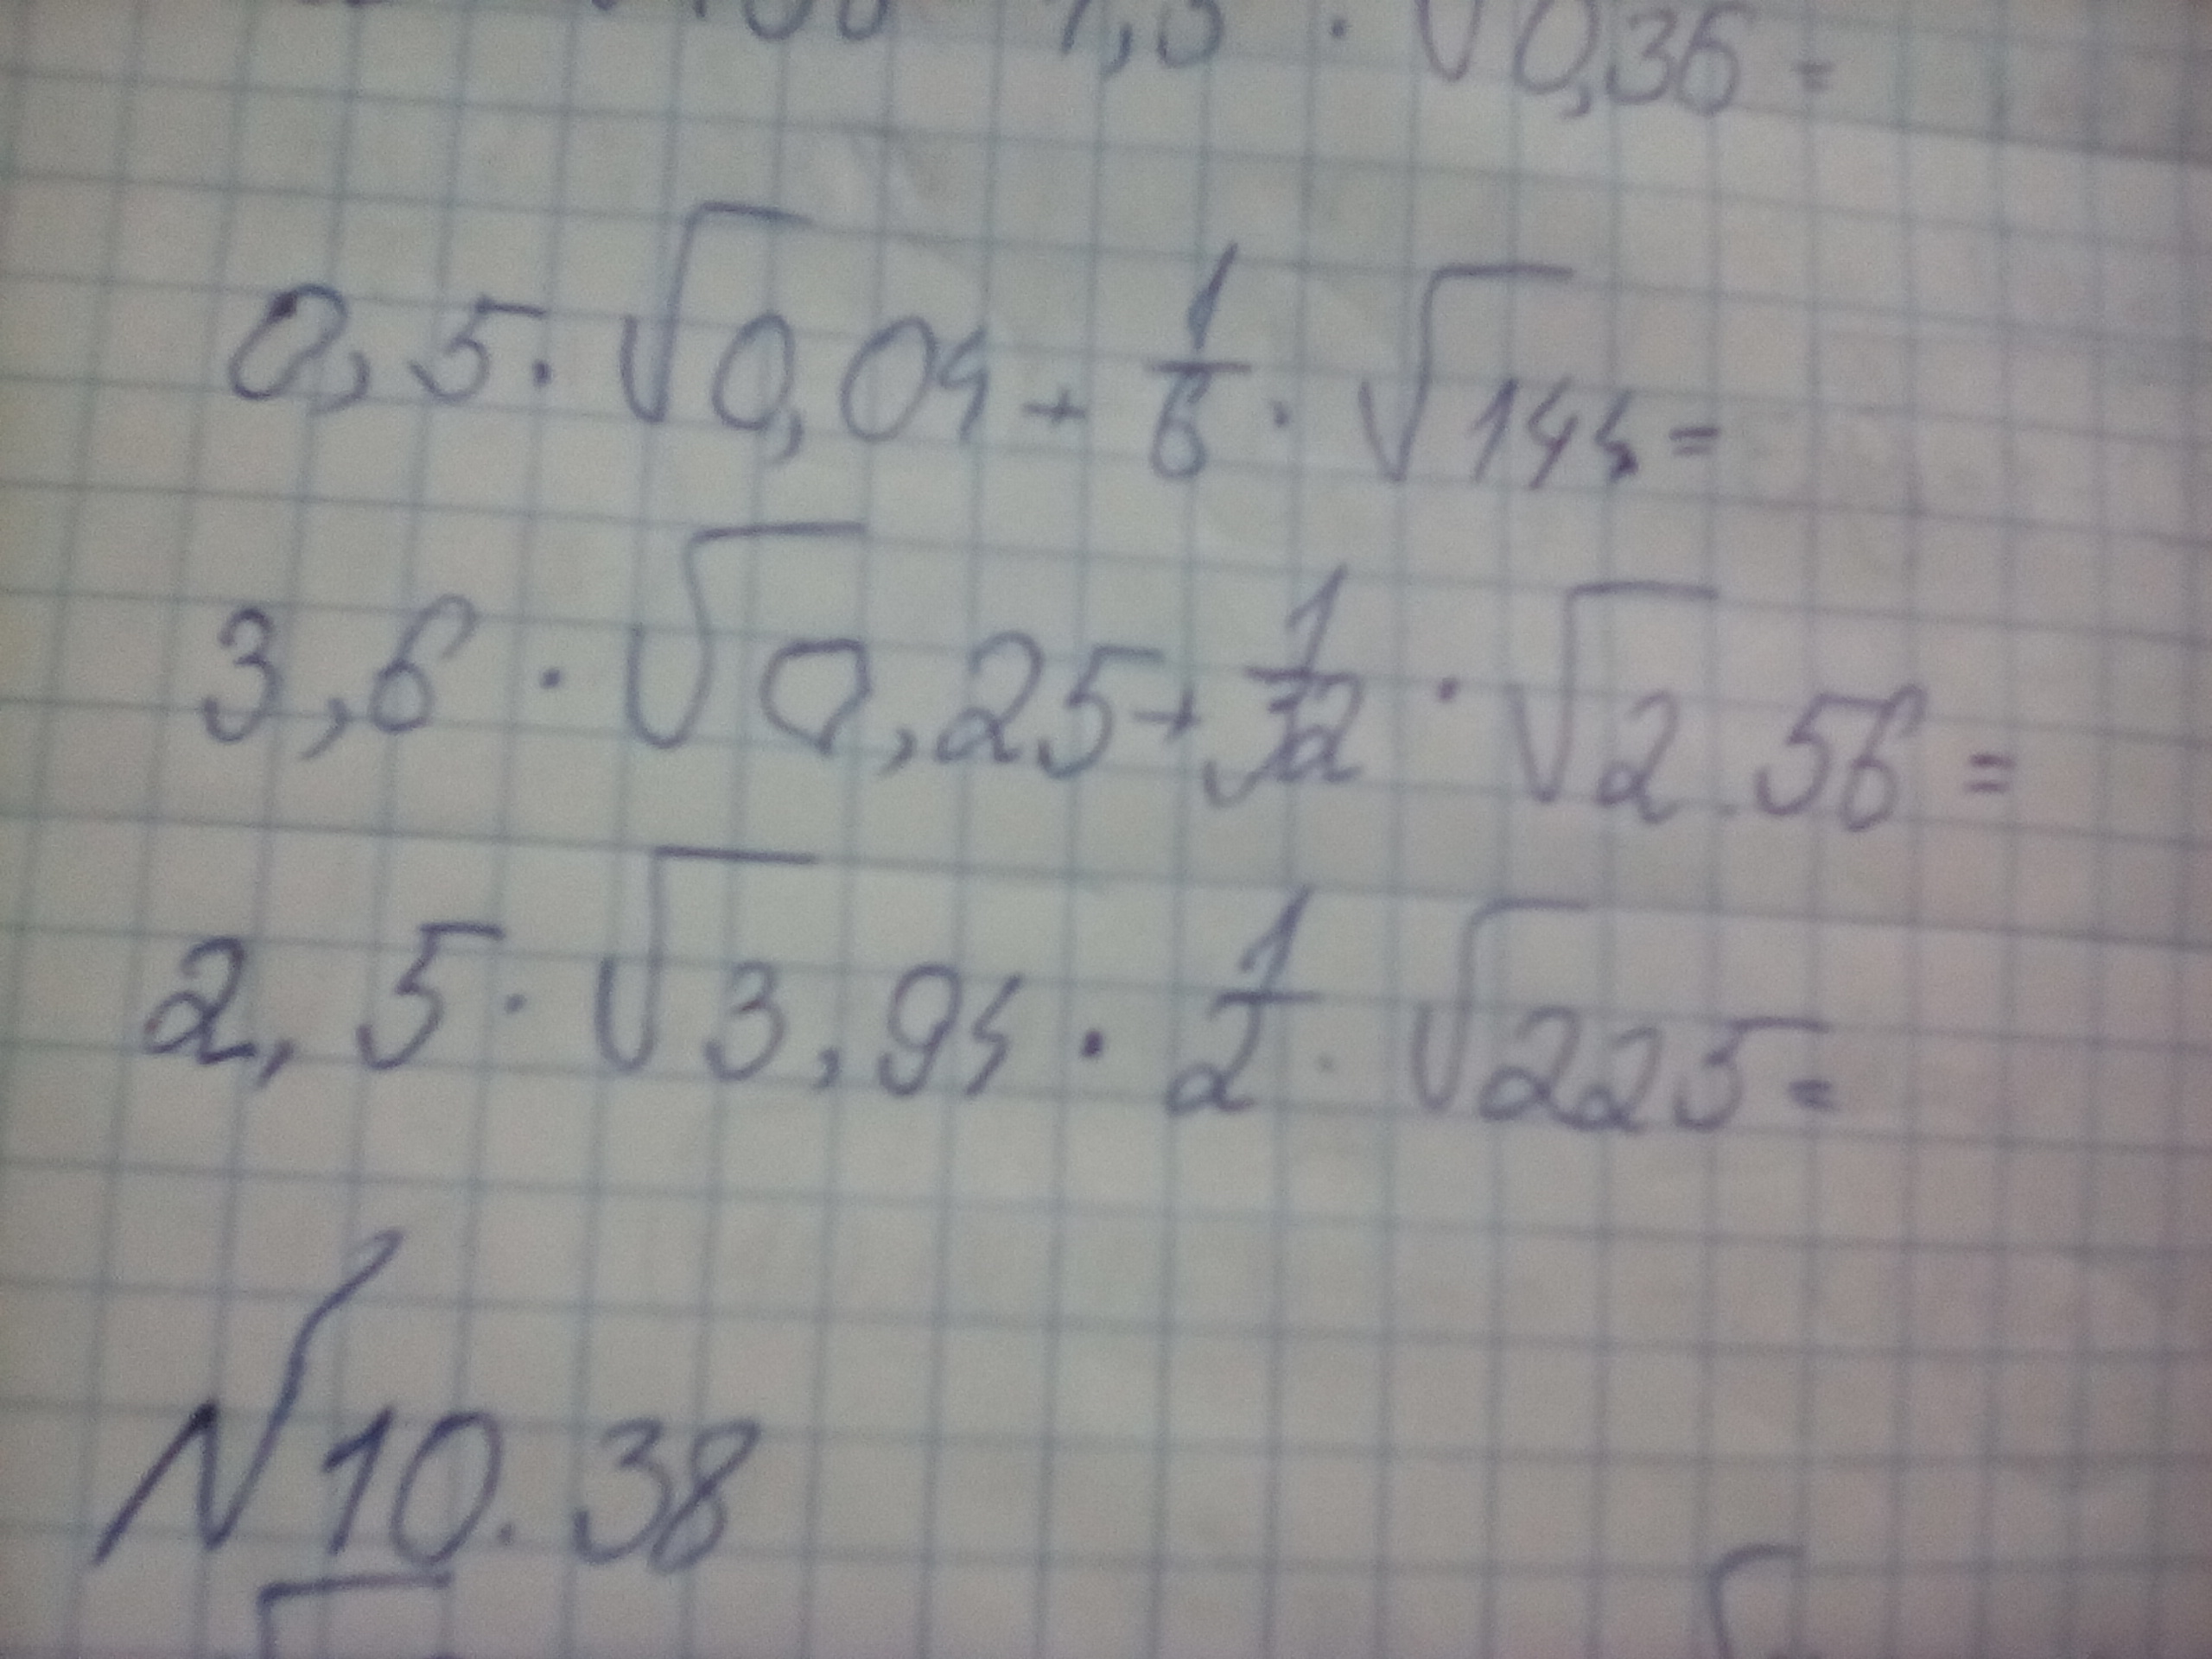 · √0,36 =
0,5 · √0,04 + 1/6 · √144 =
3,6 · √0,25 + 1/32 · √2 56 =
2,5 · √3,94 · 1/2 · √225 =
N 10.38